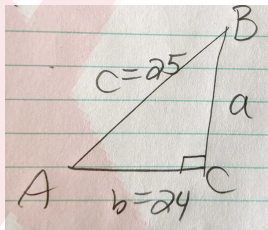 B
c=25
a
A
C
b=24